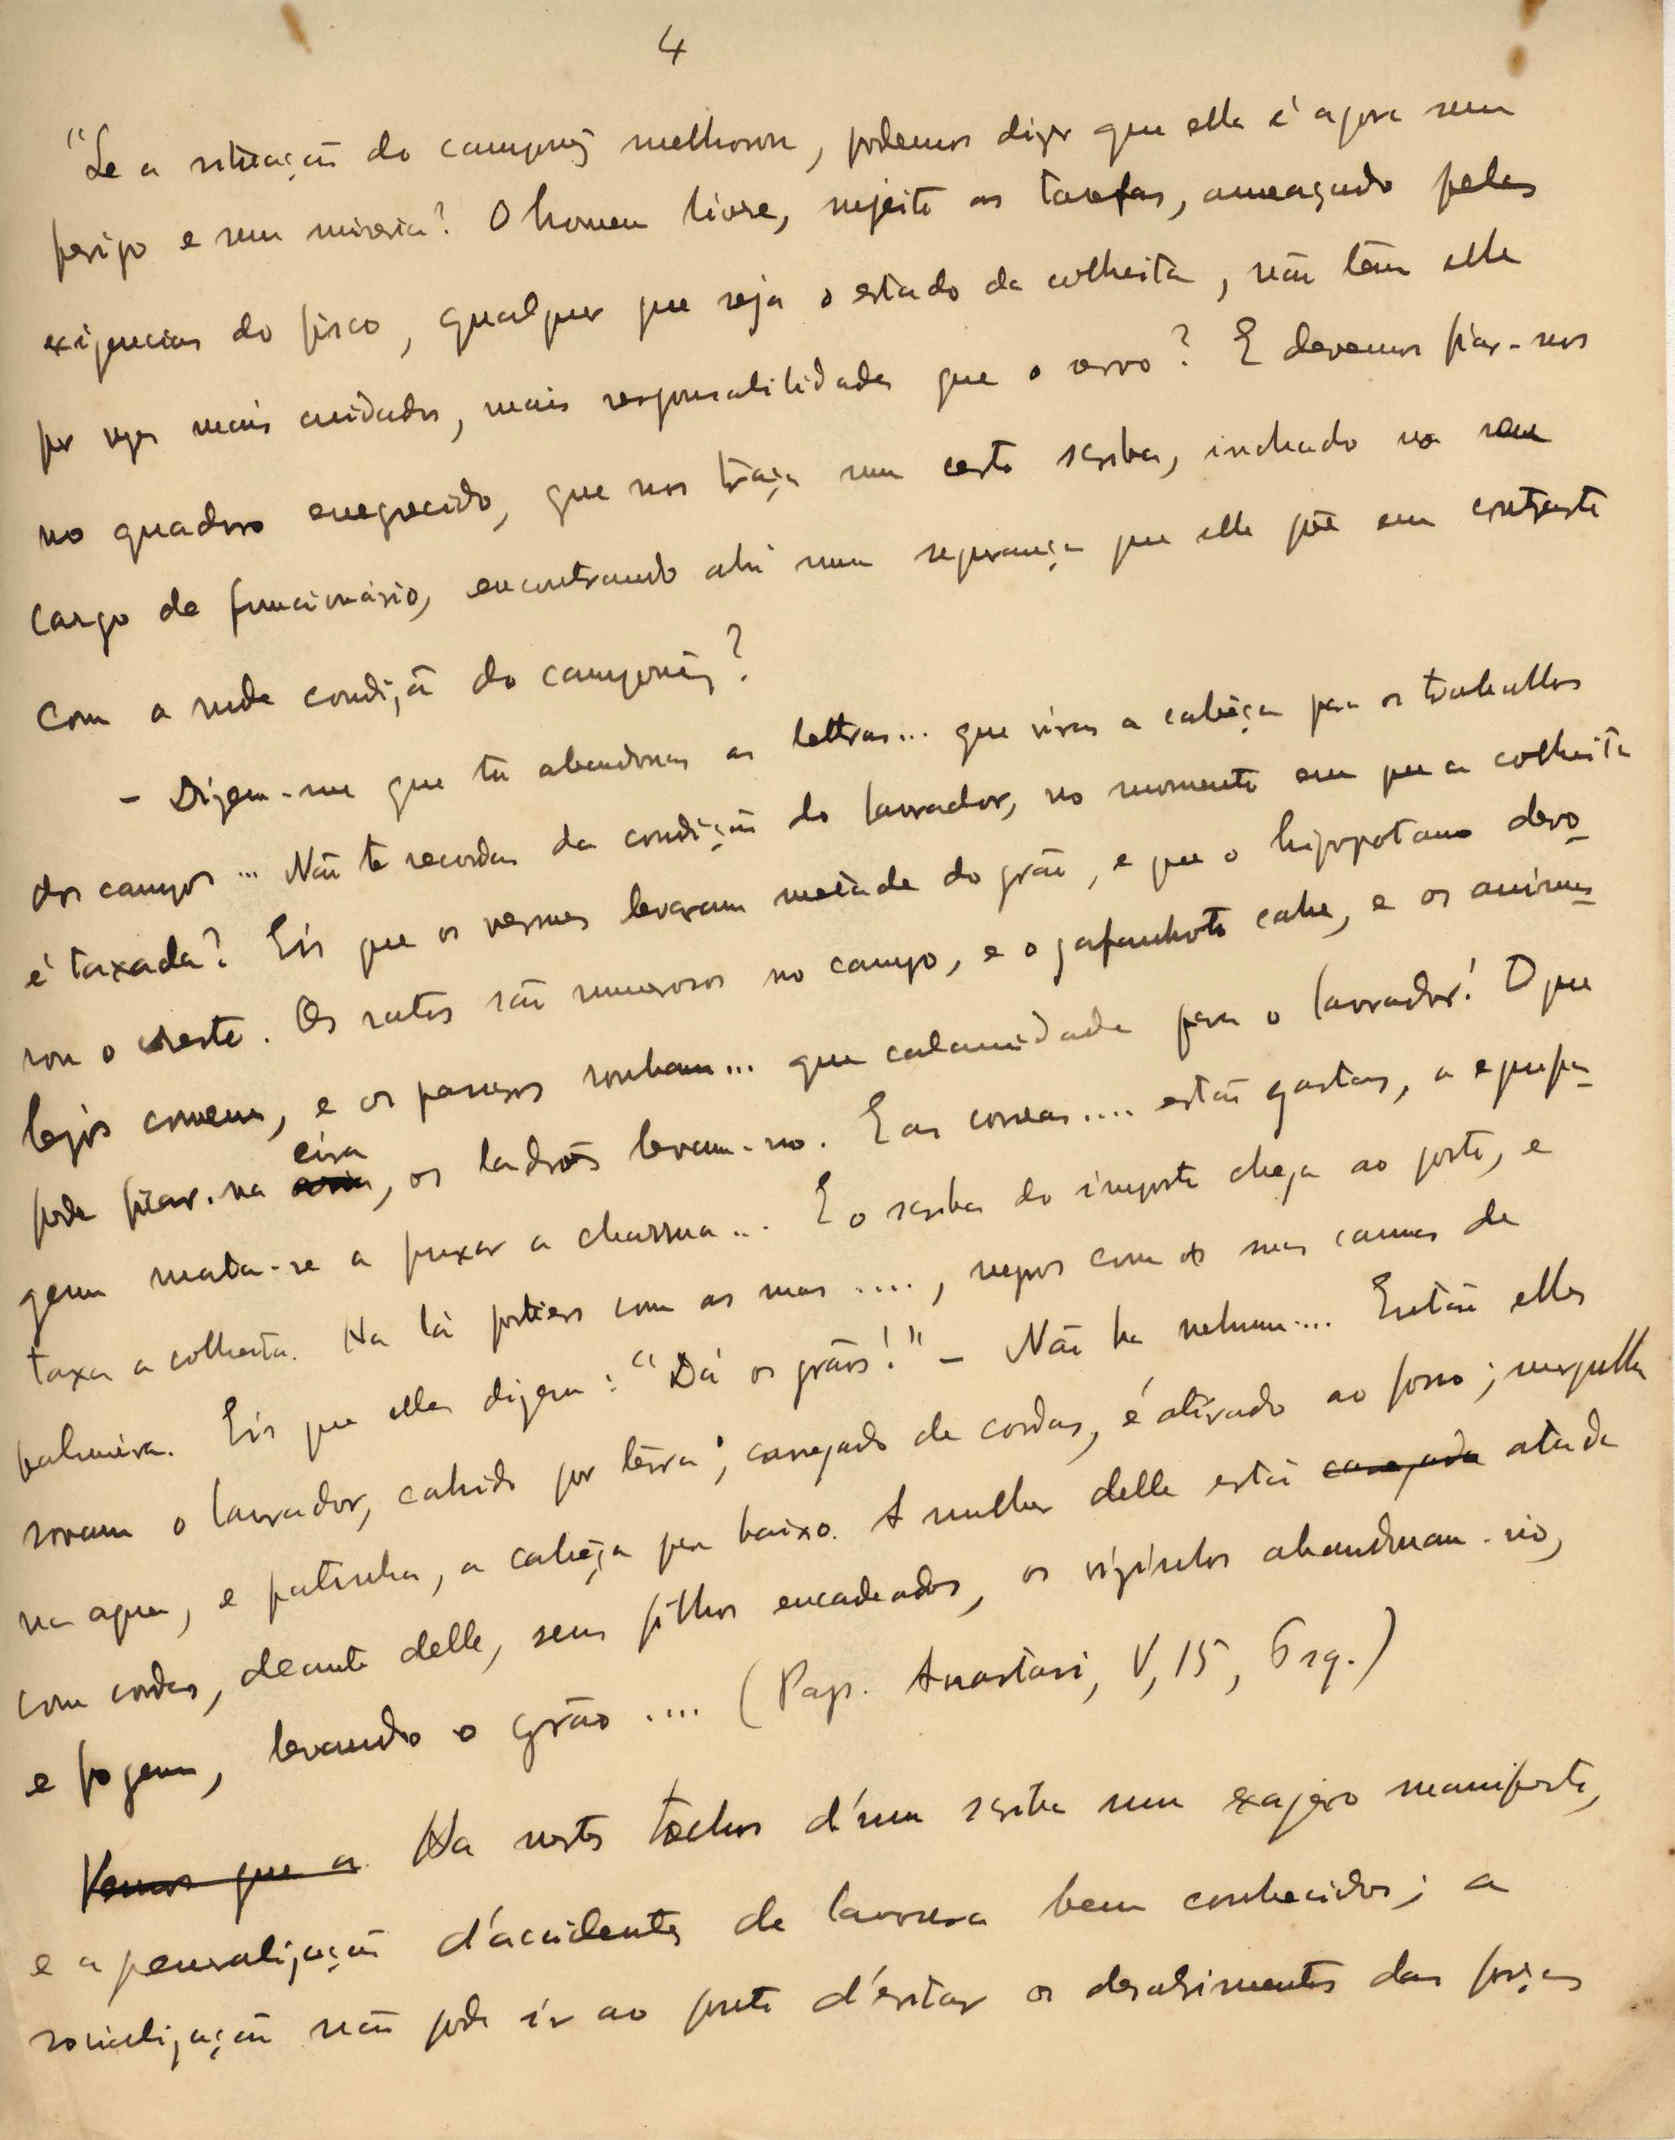 4
"Se a situação do camponêz melhorou, podemos dizer que ella é agora sem
perigo e sem miseria? O homem livre, sujeito as tarefas, ameaçado pelas
exigencias do fisco, qualquer que seja o estado da colheita, não têm elle
por vezes mais cuidados, mais responsabilidades que o servo? E devemos fiar-nos
no quadro enegrecido, que nos traça um certo scriba, inchado no seu
cargo de funcionário, encontrando ahi uma segurança que elle põe em contraste
com a rude condição do camponêz?
- Dizem-me que tu abandonas as lettras... que viras a cabêça para os trabalhos
dos campos... Não te recordas da condição do lavrador, no momento em que a colheita
é taxada? Eis que os vermes levaram metade do grão, e que o hipopotamo devo-
rou o resto. Os ratos são numerosos no campo, e o gafanhoto cahe, e os animaes
comem, e os passaros roubam... que calamidade para o lavrador! O que
pode ficar na eira, os ladrões levam-no. E as correas.... estão gastas, a equipa-
gem mata-se a puxar a charrua... E o scriba do imposto chega ao porto, e
taxa a colheita. Ha lá porteiros com as suas ...., negros com as suas cannas de
palmeira. Eis que elles dizem: "Dá os grãos!" - Não ha nehum.... Então elles
o lavrador, cahido por têrra; carregado de cordas, é atirado ao fosso; mergulha
na agua, e patinha, a cabêça para baixo. A mulher delle está carregada atada
com cordas, deante delle, seus filhos encadeados, os vizinhos abandonam-no,
e fogem, levando o grão .... (Pap. Anastasi, V, 15, 6 sq.)
Vemos que a Ha nestes trechos d'um scriba um exagero manifesto,
e a generalização d'accidentes de lavoura bem conhecidos; a
socialização não pode ir ao ponto d'evitar os desabrimentos das forças